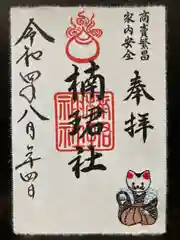 商賣繁昌
家内安全
奉拝
楠珺社
令和四年八月四日